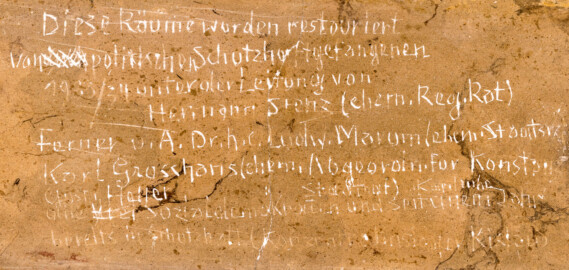 Diese Räume wurden restouriert
von politischen Schutzhaftgefangenen
1933/34 unter der Leitung von
Hermann Stenz (ehem. Reg. Rat)
Ferner u. A. Dr. h. c. Ludw. Marum (ehem. Staatsr
Karl Grosshans (ehem. Abgeordn. für Konstan
Christ. Heller Stadtrat) Karlsruhe
alle Sozialdemokratisch und seit einem Jahr
bereits in Schutzhaft. Kislau